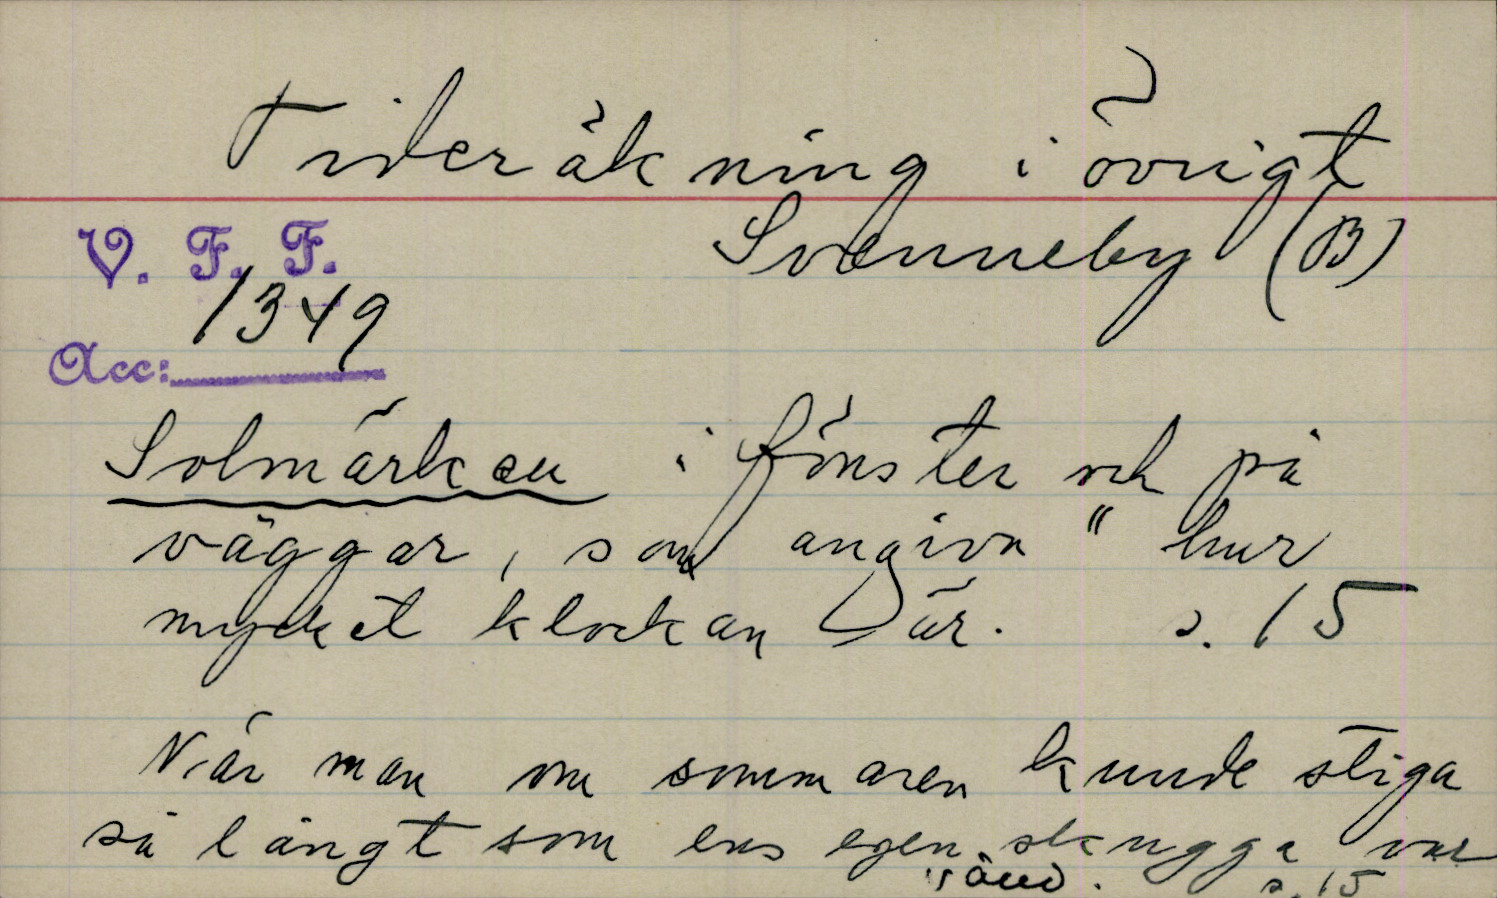 Tideräkning i övrigt
Svenneby (B)
V. F. F.
1349
Acc:
Solmärken i fönster och på
väggar, som angiva "hur
mycket klockan är. s. 15
När man om sommaren kunde stiga
så långt som ens egen skugga var
s. 15